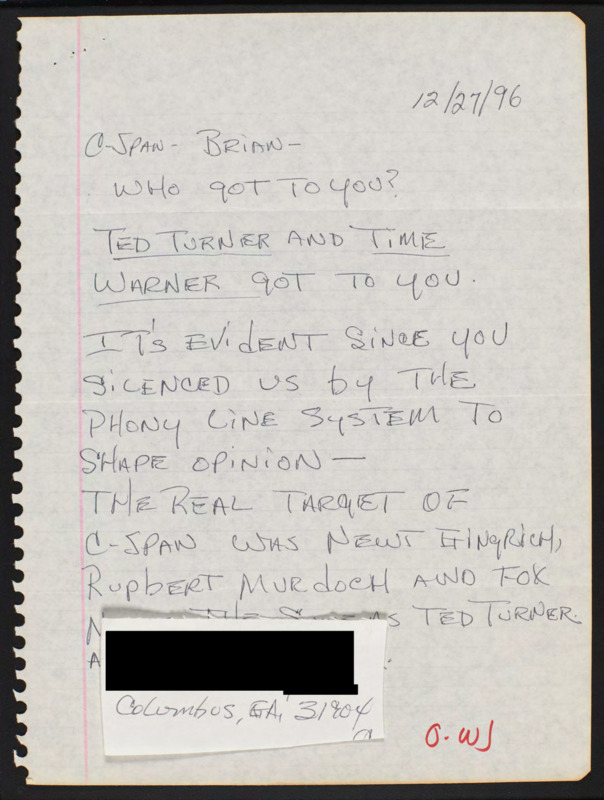 12/27/96
C-SPAN- BRIAN-
WHO GOT TO YOU?
TED TURNER AND TIME
WARNER GOT TO YOU.
IT'S EVIDENT SINCE YOU
SILENCED US by THE
PHONY LINE SYSTEM TO
SHAPE OPINION —
THE REAL TARGET OF
C-SPAN WAS NEWT GINGRICH,
RUPBERT MURDOCH AND FOX
TED TURNER.
Columbus, GA, 31904